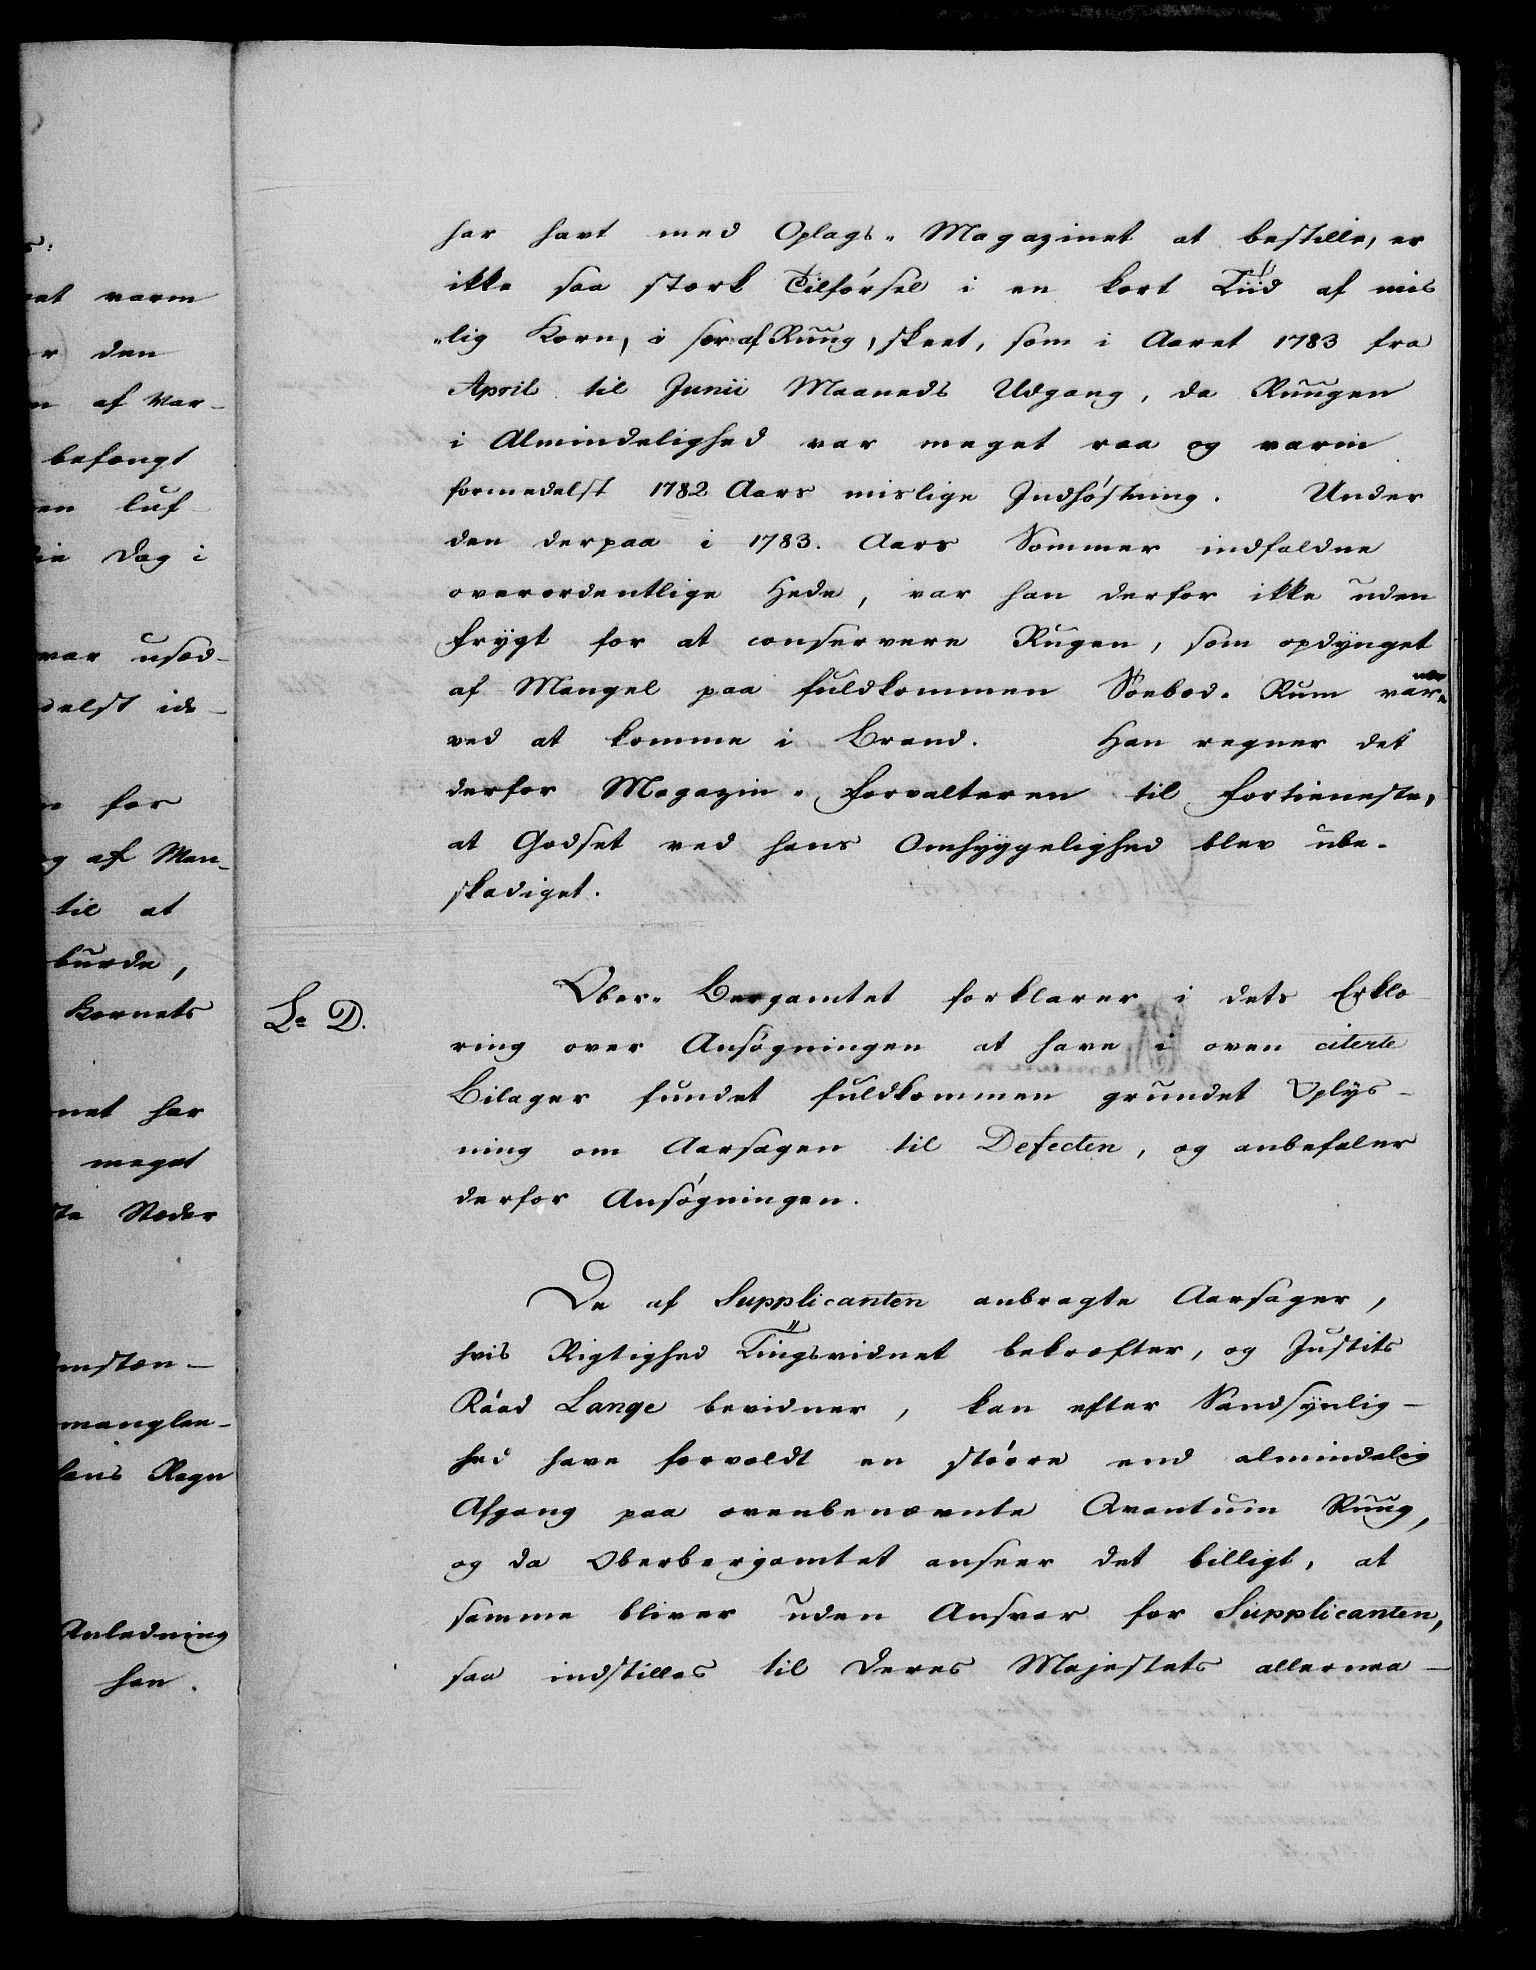 har havt med Oplags„Magazinet at bestille, er
ikke saa stærk Tilførsel i en kort Tiid af mis
„lig Korn, i sær af Ruug, skeet, som i Aaret 1783 fra
April til Junii Maaneds Udgang, da Ruugen
i Almindelighed var meget raa og varm
formedelst 1782 Aars mislige Indhøstning. Under
den derpaa i 1783. Aars Sommer indfaldne
overordentlige Hede, var han derfor ikke uden
Frygt for at conservere Rugen, som opdynget
af Mangel paa fuldkommen Søebod-Rum var nær
ved at komme i Brand. Han regner det
derfor Magazin-Forvalteren til Fortieneste,
at Godset ved hans Omhyggelighed blev ube-
skadiget.
La D.
Ober-Bergamtet forklarer i dets Erklæ
ring over Ansøgningen at have i oven citerte
Bilager fundet fuldkommen grundet Oplys-
ning om Aarsagen til Defecten, og anbefaler
derfor Ansøgningen.
De af Supplicanten anbragte Aarsager,
hvis Rigtighed Tingsvidnet bekræfter, og Justits
Raad Lange bevidner, kan efter Sandsynlig-
hed have forvoldt en større end almindelig
Afgang paa ovenbenævnte Qvantum Ruug,
og da Oberbergamtet anseer det billigt, at
samme bliver uden Ansvar for Supplicanten,
saa indstilles til Deres Majestets allernaa-
et varm
r den
af Var-
befængt
en luf-
Dag i
var usæd-
delst ide-
for
og af Man-
til at
burde,
Kornets
net har
meget
Stæder
mstæn-
manglen-
Regn
Anledning
han.